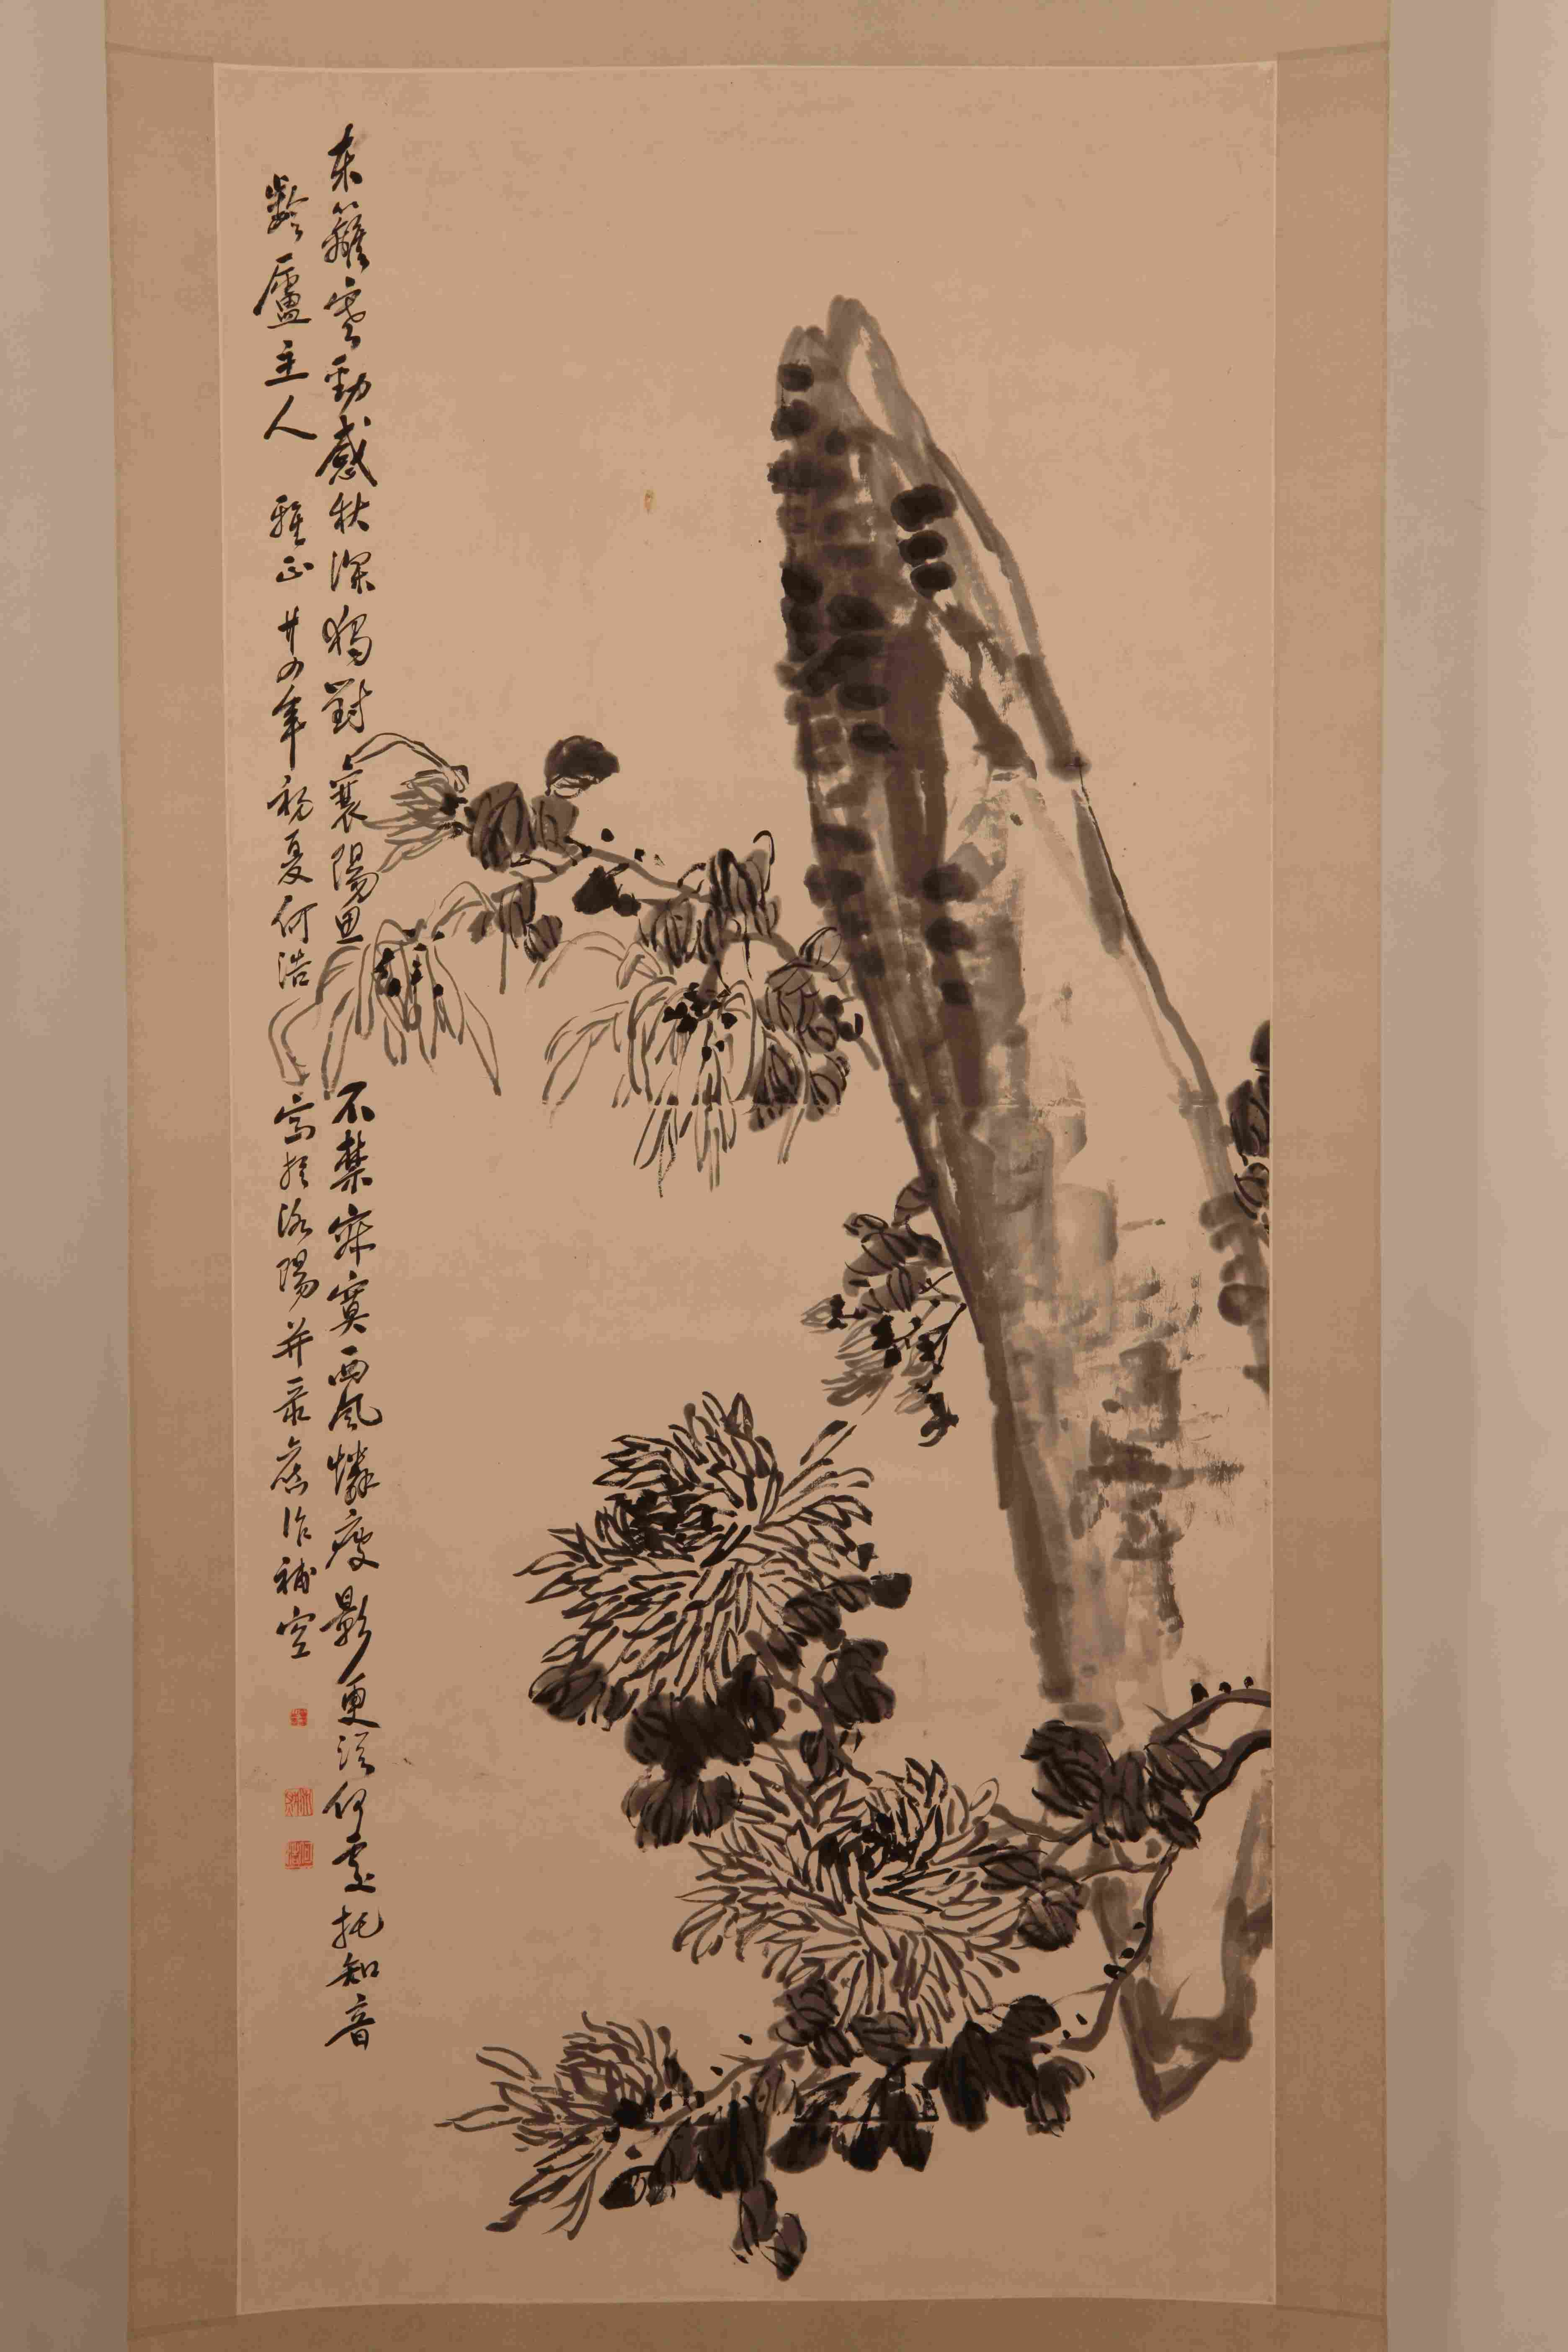 東籬寒勁感秋深獨對襄陽思不禁寂寞西風憐瘦影更從何處托知音
齡廬主人雅正廿四年初夏何浩寫於洛陽并录舊作補空